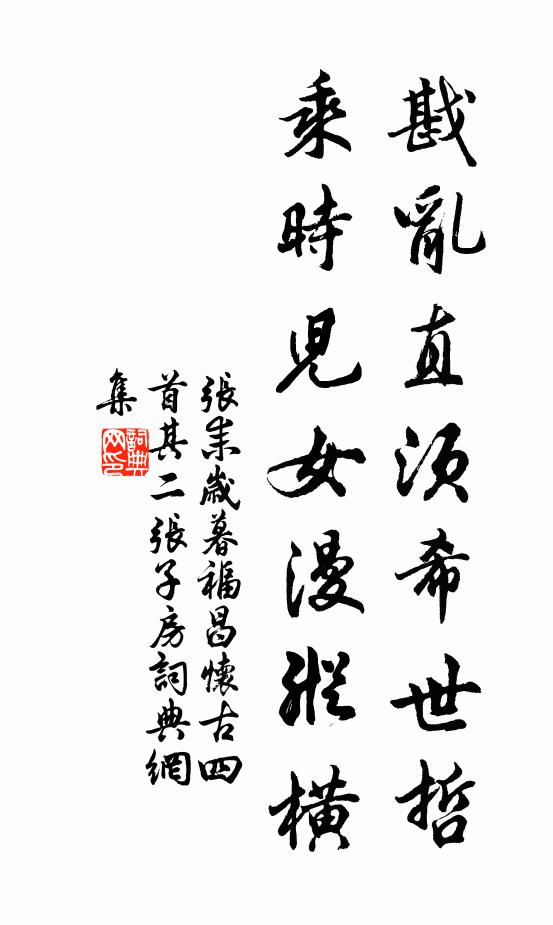 戡亂直須希世哲
乘時児女漫縱橫
張耒歲暮福昌懷古四
首其二張子房詞典網
集
詞典
网印